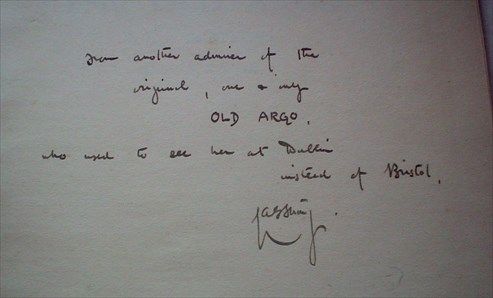 From another admirer of the
original, one & only
OLD ARGO.
who used to see her at Dublin
instead of Bristol.